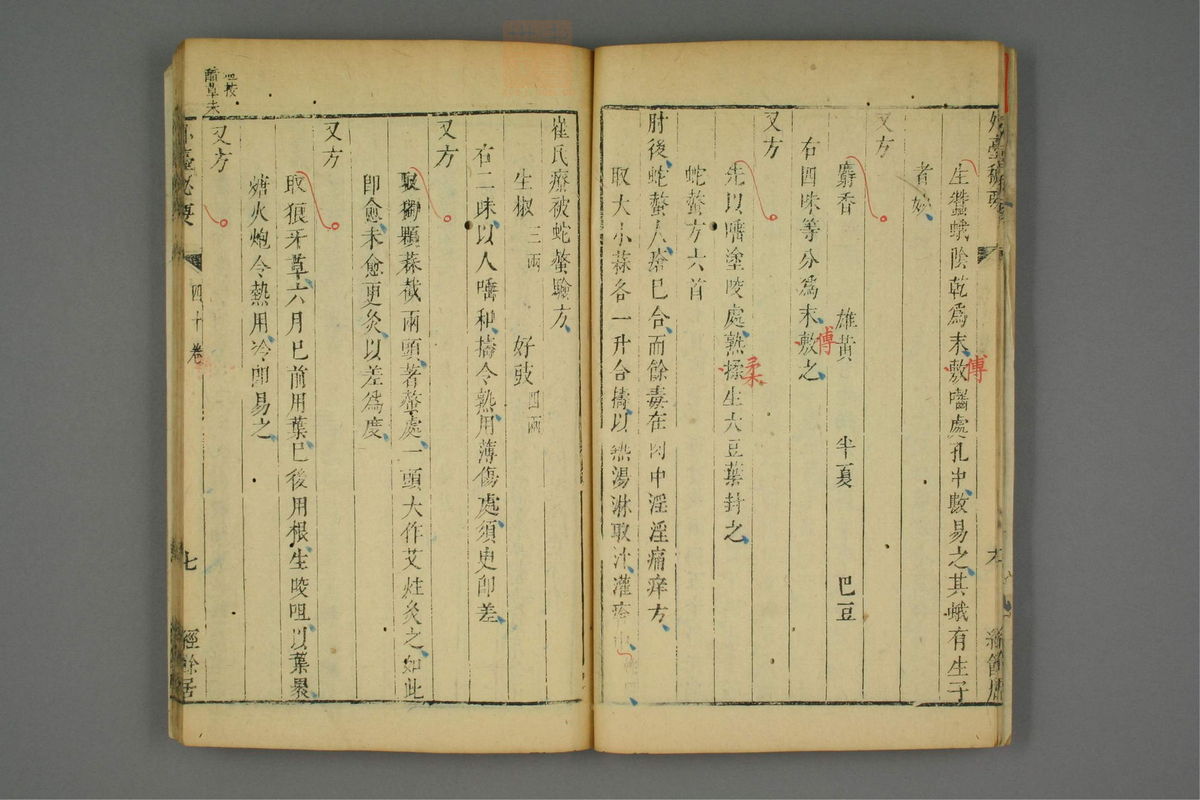 生蠶蛾陰乾爲末敷嚙處孔中數易之其蛾有生子
者妙
傅
又方
麝香 雄黃 半夏 巴豆
右四味等分爲末敷之
傅
又方
先以唾塗咬處熟揉生大豆葉封之
柔
蛇螫方六首
肘後蛇螫人瘡已合而餘毒在肉中淫淫痛痒方
取大小蒜各一升合擣以熱湯淋取汁灌瘡中
崔氏療被蛇螫驗方
生椒三兩 好豉四兩
右二味以人唾和擣令熟用薄傷處須臾卽差
又方
取獨顆蒜截兩頭著螫處一頭大作艾炷灸之如此
卽愈未愈更灸以差爲度
又方
取狼牙草六月已前用葉已後用根生㕮咀以葉裹
煻火炮令熱用冷卽易之
又方
外臺秘要 四十卷 七 經餘居